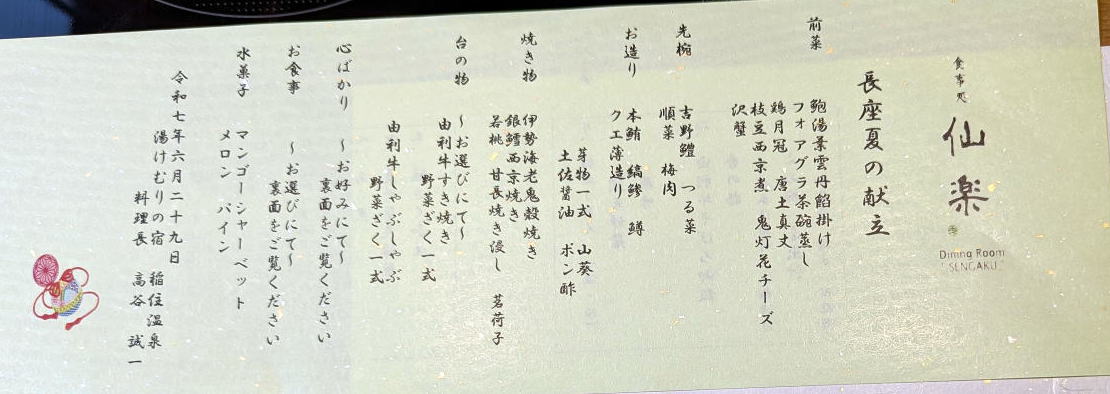 食事処
仙楽
Dining Room
"SENGAKU"
長座夏の献立
前菜
鮑湯葉雲丹餡掛け
フォアグラ茶碗蒸し
鶏月冠 唐土真丈
枝豆西京煮 鬼灯花チーズ
沢蟹
先椀
吉野鱧 つる菜
順菜 梅肉
お造り
本鮪 縞鯵 鱒
クエ薄造り
芽物一式 山葵
土佐醤油 ポン酢
焼き物
伊勢海老鬼殻焼き
銀鱈西京焼き
若桃 甘長焼き浸し 茗荷子
台の物
～お選びにて～
由利牛すき焼き
野菜ざく一式
由利牛しゃぶしゃぶ
野菜ざく一式
心ばかり
～お好みにて～
裏面をご覧ください
お食事
～お選びにて～
裏面をご覧ください
水菓子
マンゴーシャーベット
メロン パイン
令和七年六月二十九日
湯けむりの宿 稲住温泉
料理長 高谷 誠一